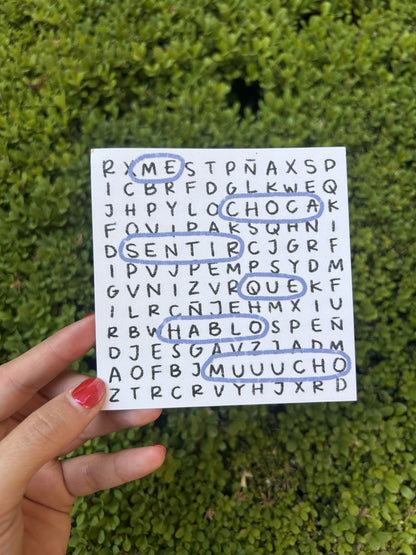 R X M E S T P Ñ A X S P
I C B R F D G L K W E Q
J H P Y L O C H O C A K
F O V I P A K S Q H N I
D S E N T I R C J G R F
I P V J P E M P S Y D M
G V N I Z V R Q U E K F
I L R C Ñ J E H M X I U
R B W H A B L O S P E Ñ
D J E S G A V Z J A D M
A O F B J M U U U C H O
Z T R C R V Y H J X R D